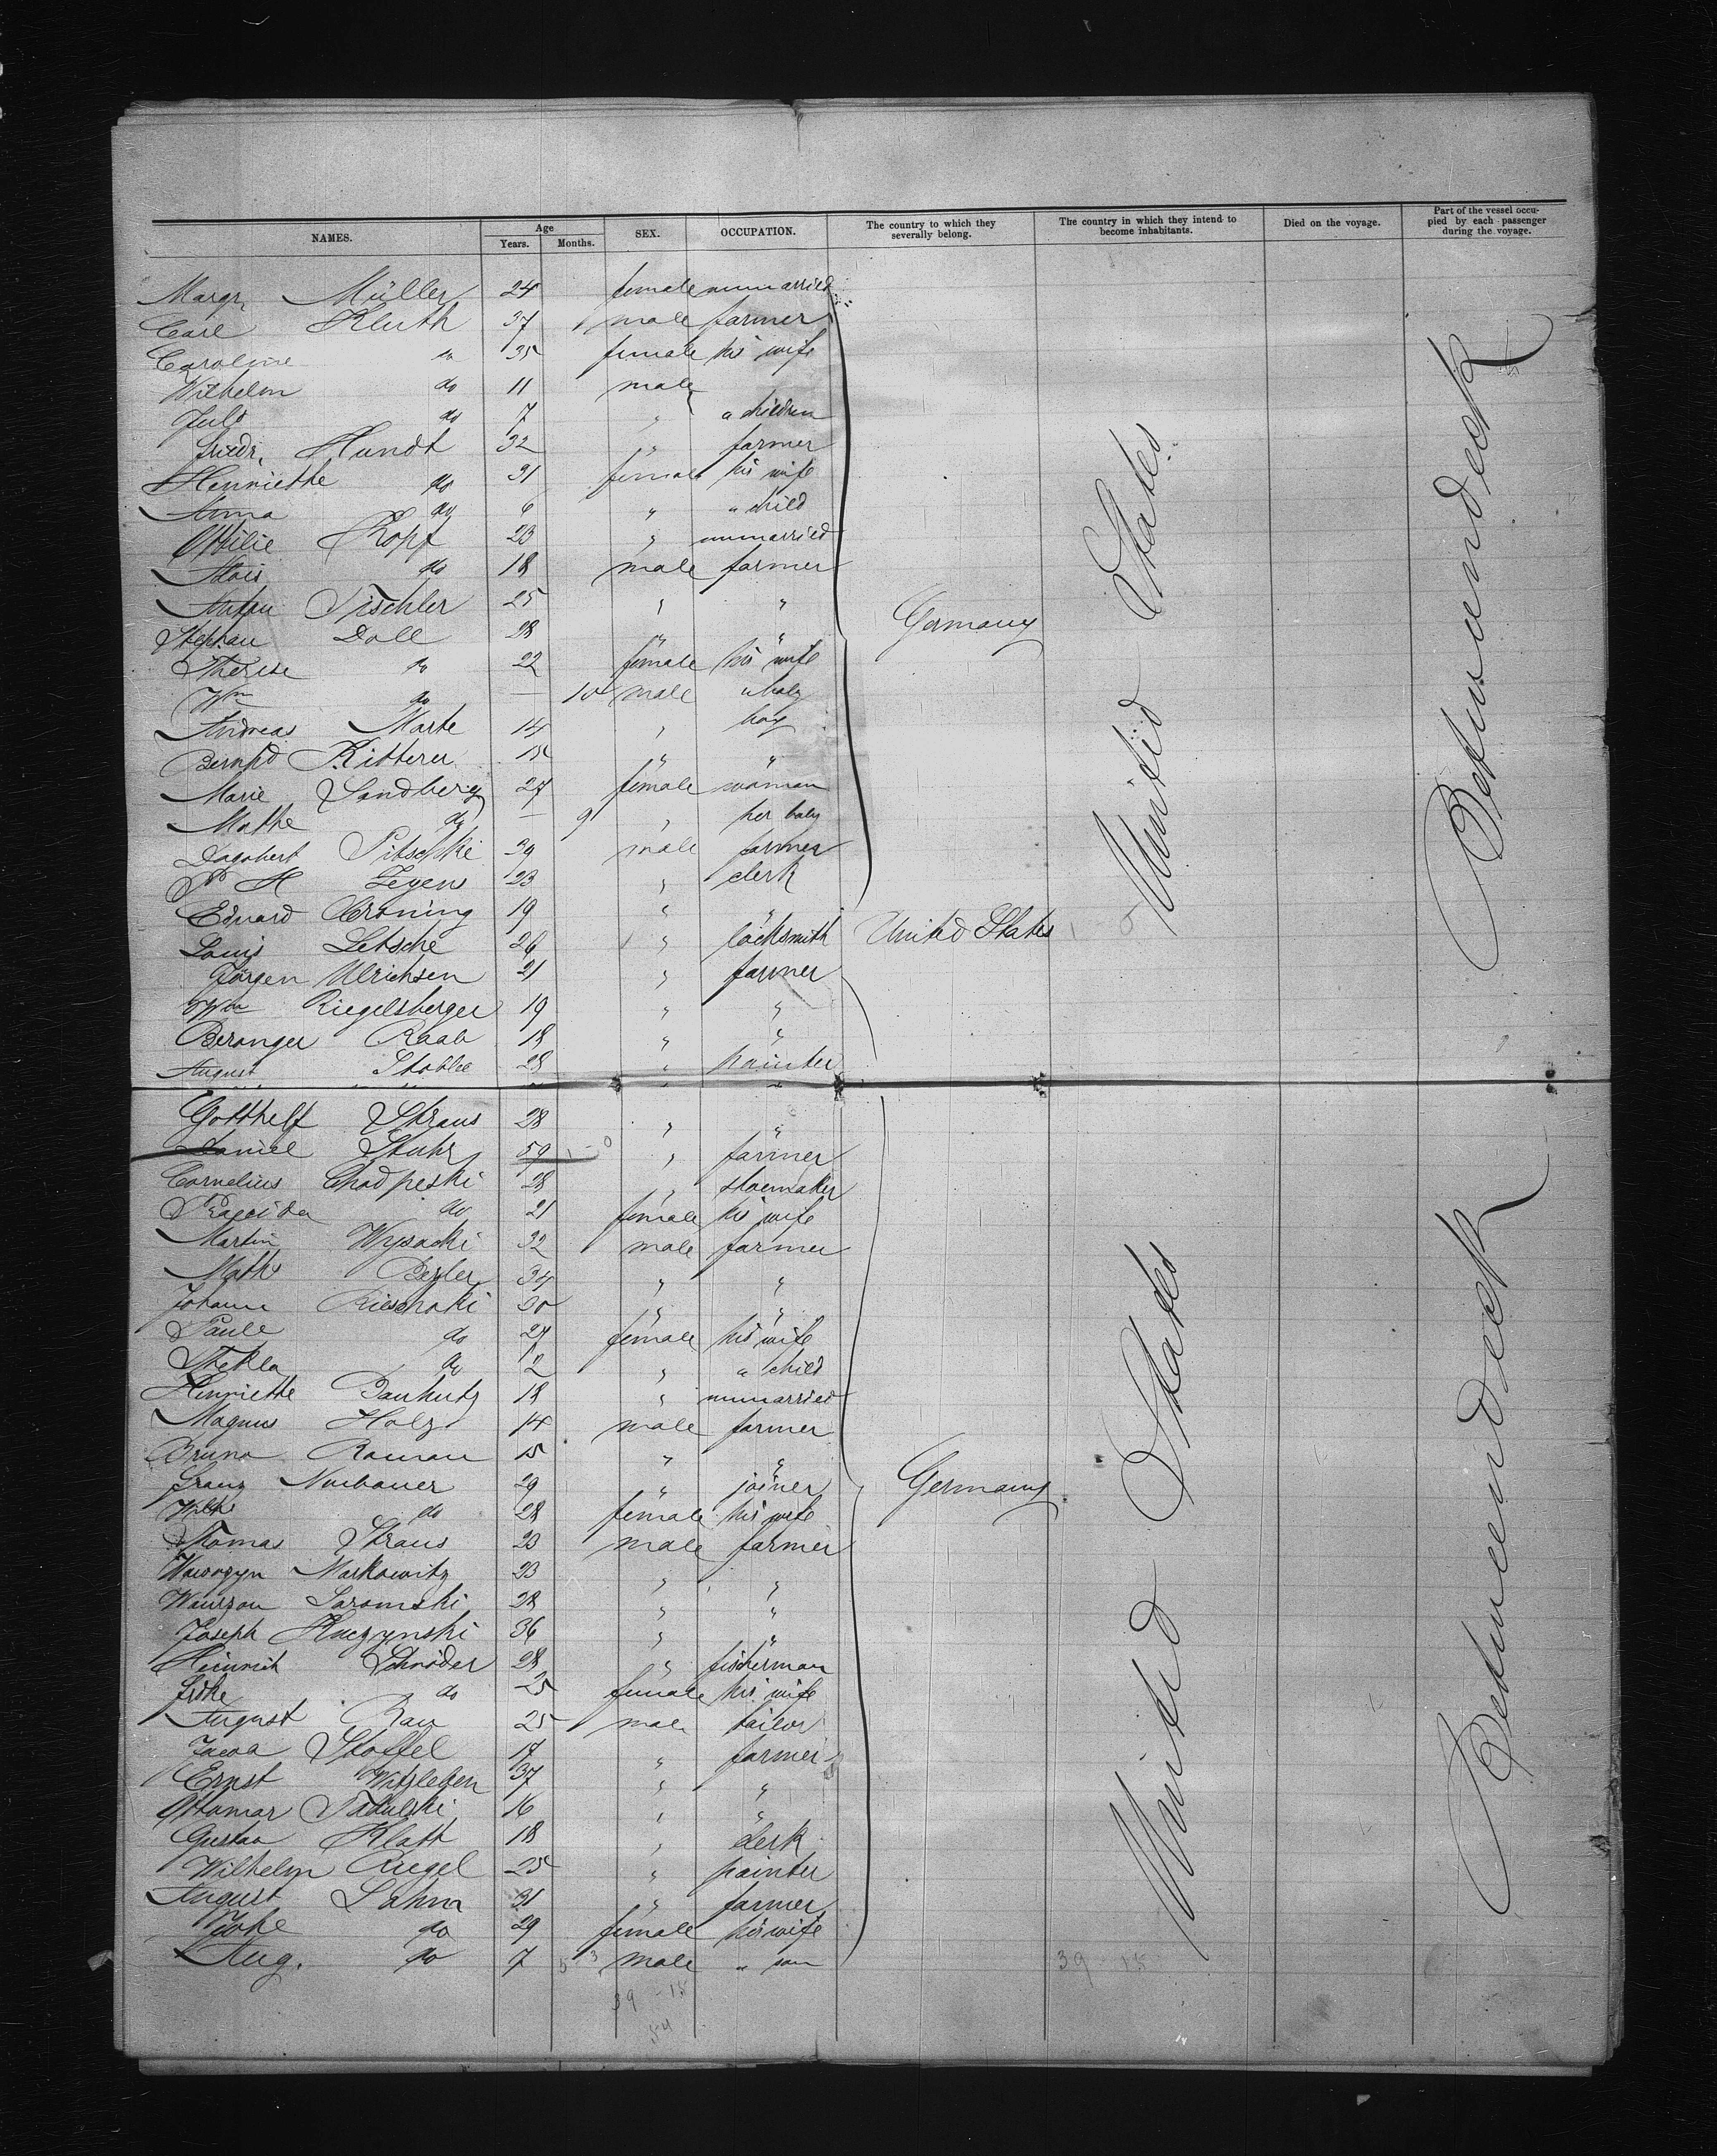 NAMES. Age Years. Months. SEX. OCCUPATION. The country to which they severally belong. The country in which they intend to become inhabitants. Died on the voyage. Part of the vessel occupied by each passenger during the voyage.
Margr. Müller 24 female unmarried
Carl Kluth 37 male farmer
Caroline do 35 female his wife
Wilhelm do 11 male
Juls do 7 " " children
Friedr. Hundt 32 " farmer
Henriette do 31 female his wife
Anna do 6 " " child
Ottilie Kopf 23 " unmarried
Alois do 18 male farmer
Anton Tischler 25 " " Germany
Stephan Doll 28 " "
Therese do 22 female his wife
Wm do — 10 male " baby
Andreas Marte 14 " boy
Bernhd Ritterer 15 " "
Marie Sandberg 27 female woman
Mathe do — 9 " her baby
Dagobert Pitschki 29 male farmer
P H Zegens 23 " clerk
Eduard Croning 19 " "
Louis Letsche 26 " locksmith United States
Jörgen Ulrichsen 21 " farmer
Wm Riegelsberger 19 " "
Beranger Raab 18 " "
August Stablie 28 " painter
United States
Betweendeck
Gotthelf Straus 28 " "
Daniel Stuhr 59 " farmer
Cornelius Chodpeski 28 " shoemaker
do 21 female his wife
Martin Wysocki 32 male farmer
Maths Bezler 34 " "
Johann Rieschoki 30 " "
Paule do 27 female his wife
Thekla do 2 " " child
Henriette Banhutz 18 " unmarried
Magnus Holz 14 male farmer
Bruno Roman 15 " "
Franz Neubauer 29 " joiner Germany
Wilhe do 28 female his wife
Thomas Straus 23 male farmer
Markowitz 23 " "
Saromski 28 " "
Joseph Kuczynski 36 " "
Heinrich Schröder 28 " fischerman
Frdke do 25 female his wife
August Rau 25 male tailor
Jacob Stoffel 17 " farmer
Ernst Witzleben 37 " "
Ottomar Tadulski 16 " "
Gustav Klatt 18 " clerk
Wilhelm Riegel 25 " painter
August Lahna 31 " farmer
do 29 female his wife
Aug. do 7 male " son
United States
Betweendeck
5 3
39 - 15
39 - 15
54